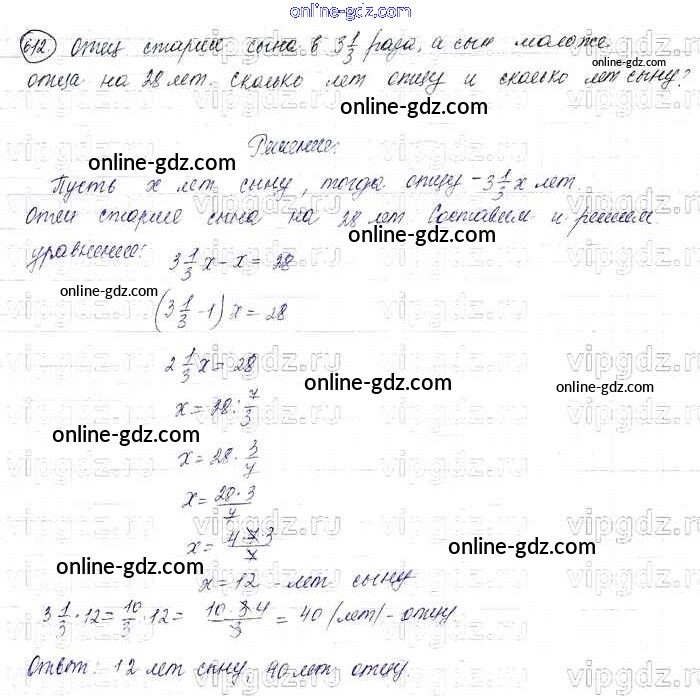 online-gdz.com
612. Отец старше сына в 3 1/3 раза, а сын моложе
отца на 28 лет. Сколько лет отцу и сколько лет сыну?
online-gdz.com
Решение:
online-gdz.com
Пусть x лет сыну, тогда отцу - 3 1/3 x лет.
Отец старше сына на 28 лет. Составим и решим
online-gdz.com
уравнение:
3 1/3 x - x = 28
online-gdz.com
(3 1/3 - 1) x = 28
vipgdz.ru
2 1/3 x = 28
online-gdz.com
online-gdz.com
x = 28 : 7/3
online-gdz.com
x = 28 · 3/7
x = 28 · 3/7
vipgdz.ru
x = 4 · 7 · 3/7
online-gdz.com
online-gdz.com
x = 12 - лет сыну
3 1/3 · 12 = 10/3 · 12 = 10 · 3 · 4/3 = 40 (лет) - отцу.
Ответ: 12 лет сыну, 40 лет отцу.